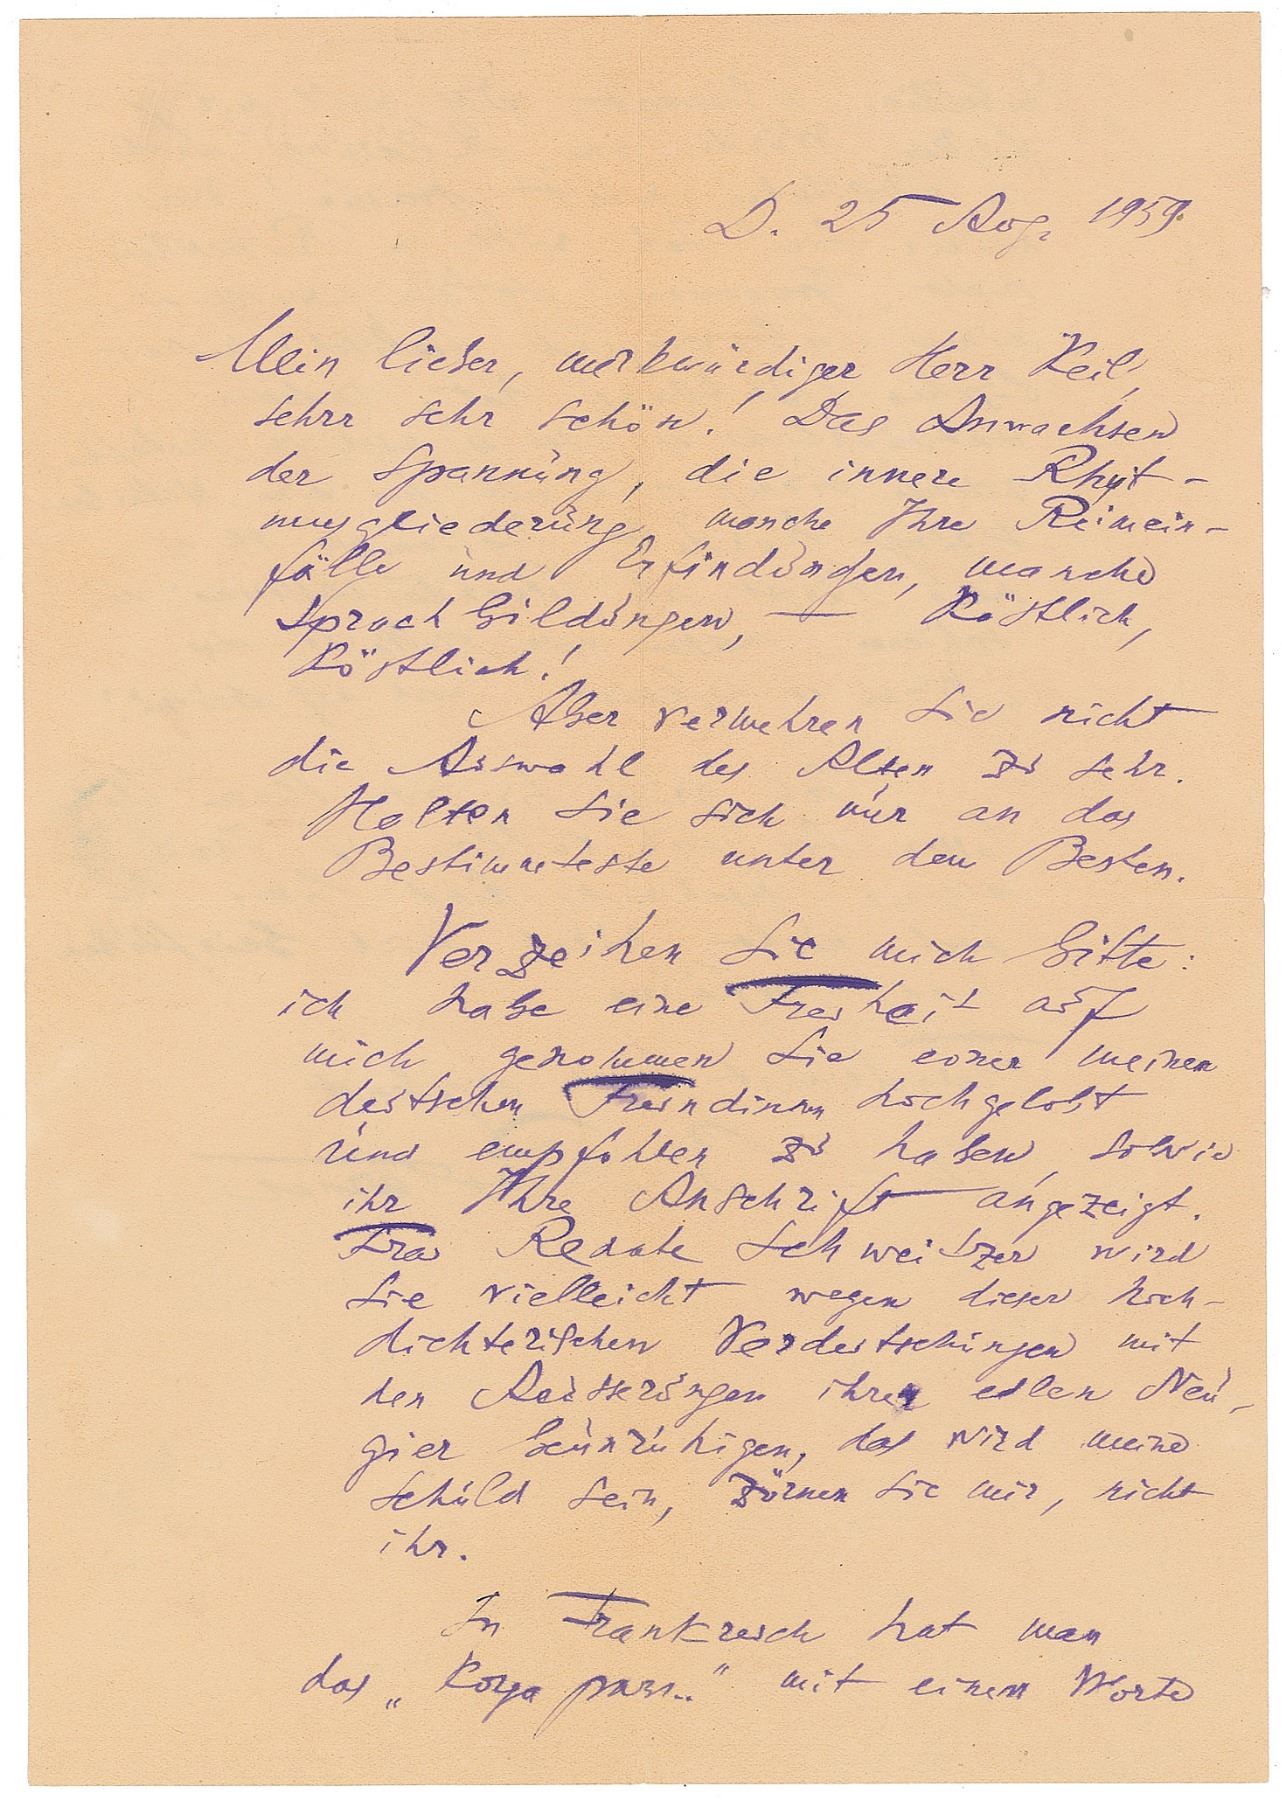 D. 25 Aug. 1959.
Mein lieber, merkwürdiger Herr Keil,
sehrr sehr schön! Das Anwachsen
der Spannung, die innere Rhyt-
musgliederung, manche Ihre Reimein-
fälle und Erfindungen, manche
Sprachbildungen, — köstlich,
köstlich!
Aber vermehren Sie nicht
die Auswahl des Alten zu sehr.
Halten Sie sich nur an das
Bestimmteste unter dem Besten.
Verzeihen Sie mich bitte:
ich habe eine Freiheit auf
mich genommen Sie einer meinen
deutschen Freundinnen hochgelobt
und empfohlen zu haben, sowie
ihr Ihre Anschrift angezeigt.
Frau Renate Schweitzer wird
Sie vielleicht wegen dieser hoch-
dichterischen Verdeutschungen mit
den Aeusserungen ihrer edlen Neu-
gier beunruhigen, das wird meine
Schuld sein, zürnen Sie mir, nicht
ihr.
In Frankreich hat man
das „ Когда разг.." mit einem Worte